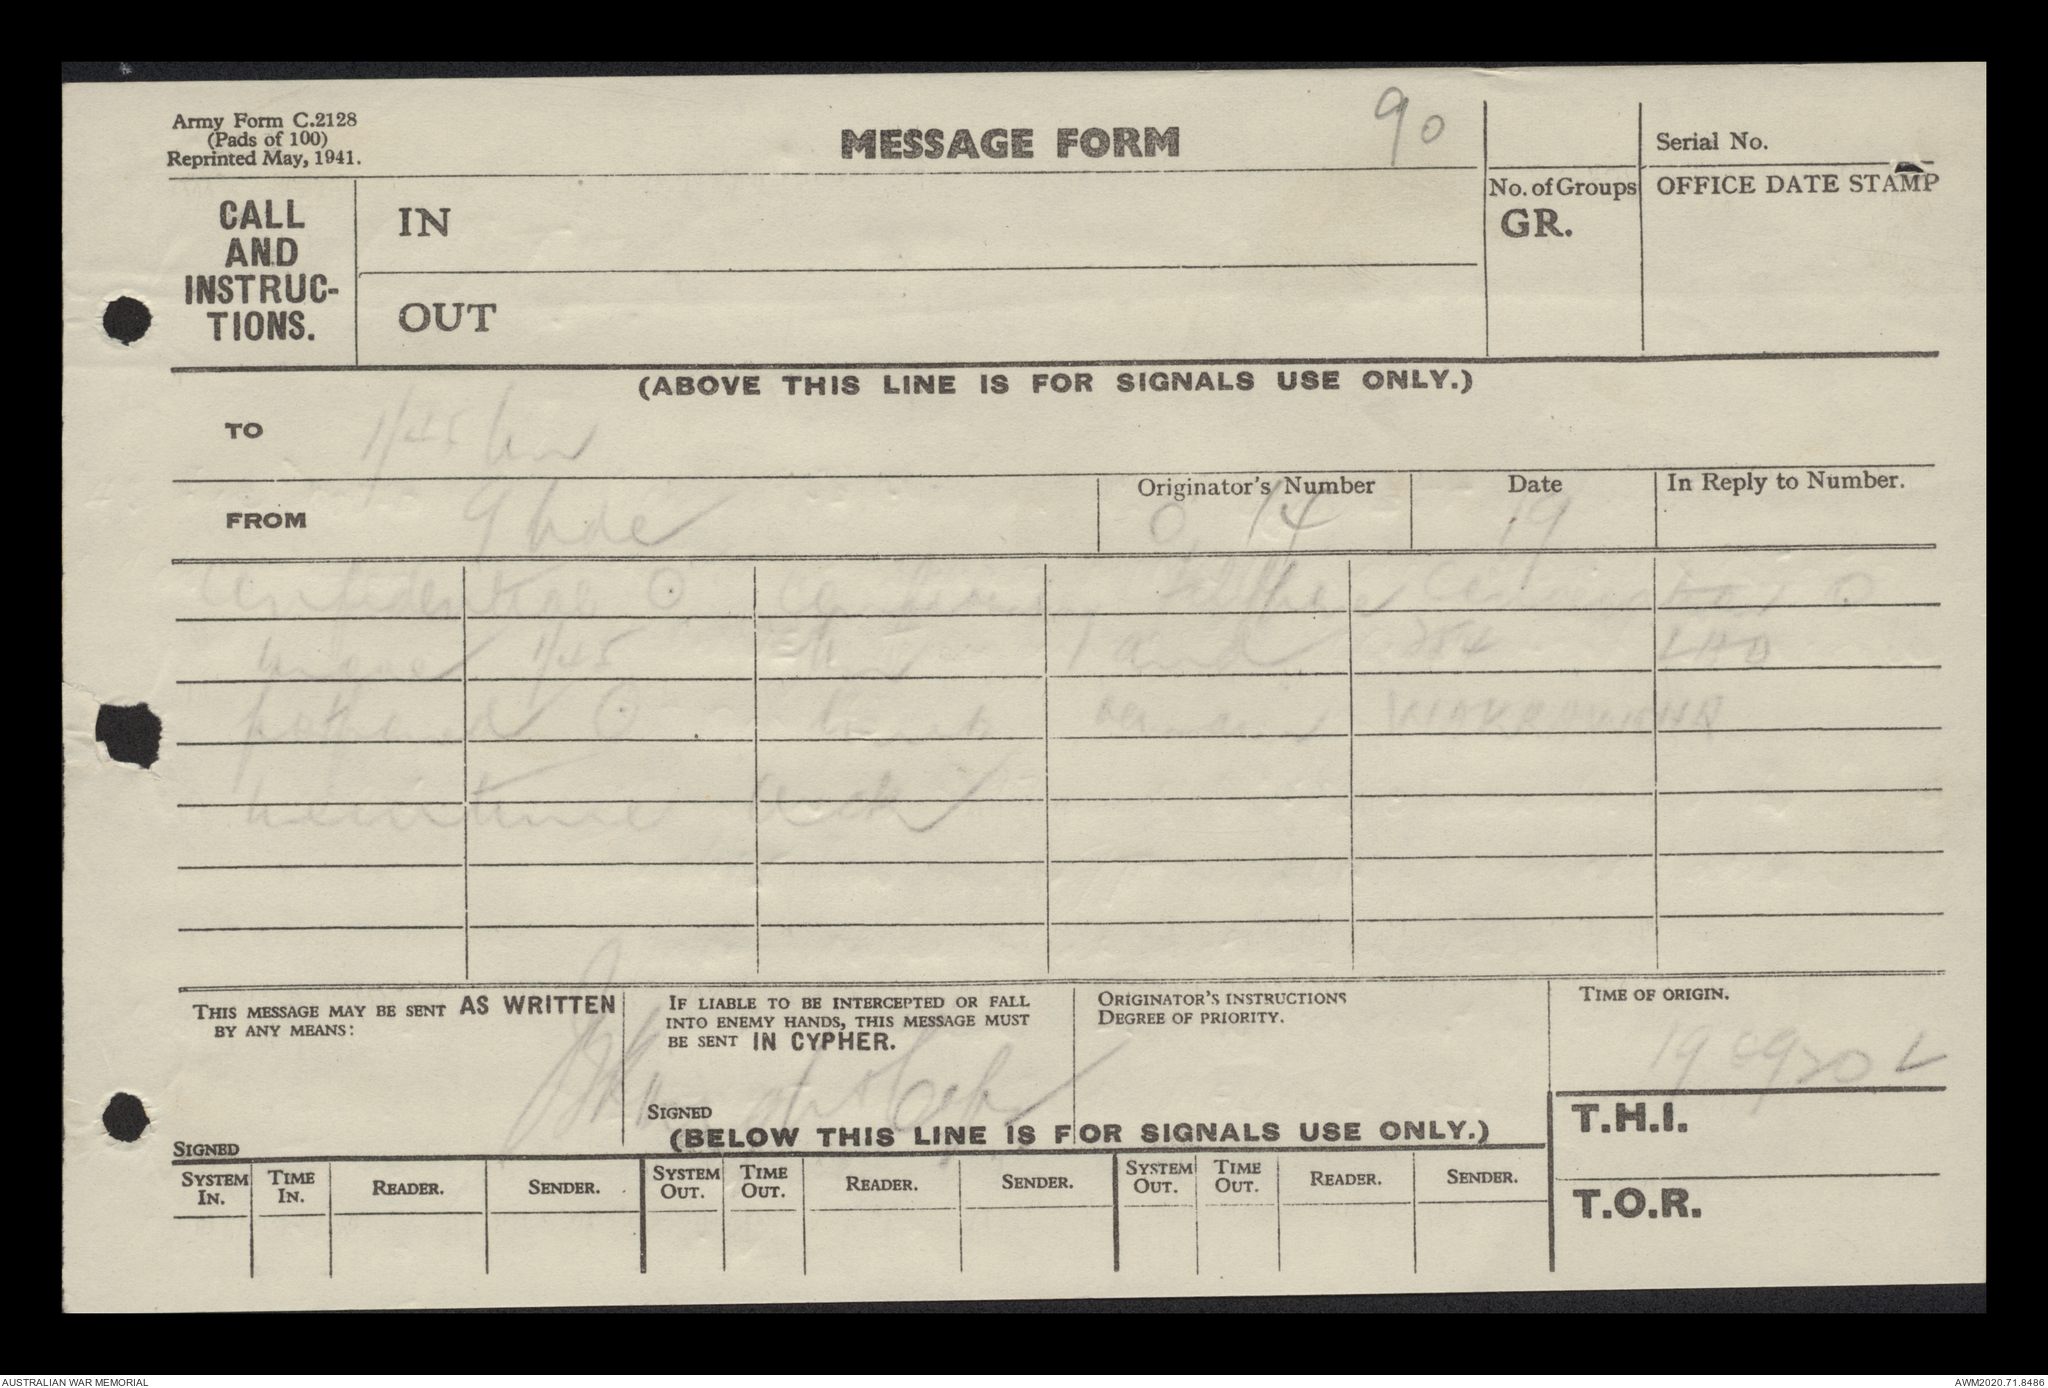 Army Form C.2128
(Pads of 100)
Reprinted May, 1941.
MESSAGE FORM
90
Serial No.
CALL
AND
INSTRUC-
TIONS.
IN
OUT
No. of Groups
GR.
OFFICE DATE STAMP
(ABOVE THIS LINE IS FOR SIGNALS USE ONLY.)
TO 1/45 Bn
FROM 9 Bde
Originator's Number O. 14
Date 19
In Reply to Number.
Confidential O confirming telephone conversation O
move 1/45 Bn and 254 LAD
postponed O units remain
meantime
THIS MESSAGE MAY BE SENT AS WRITTEN
BY ANY MEANS:
SIGNED
IF LIABLE TO BE INTERCEPTED OR FALL
INTO ENEMY HANDS, THIS MESSAGE MUST
BE SENT IN CYPHER.
SIGNED
ORIGINATOR'S INSTRUCTIONS
DEGREE OF PRIORITY.
TIME OF ORIGIN.
19 0920 L
(BELOW THIS LINE IS FOR SIGNALS USE ONLY.)
T.H.I.
T.O.R.
SYSTEM IN.
TIME IN.
READER.
SENDER.
SYSTEM OUT.
TIME OUT.
READER.
SENDER.
SYSTEM OUT.
TIME OUT.
READER.
SENDER.
AUSTRALIAN WAR MEMORIAL
AWM2020.71.8486